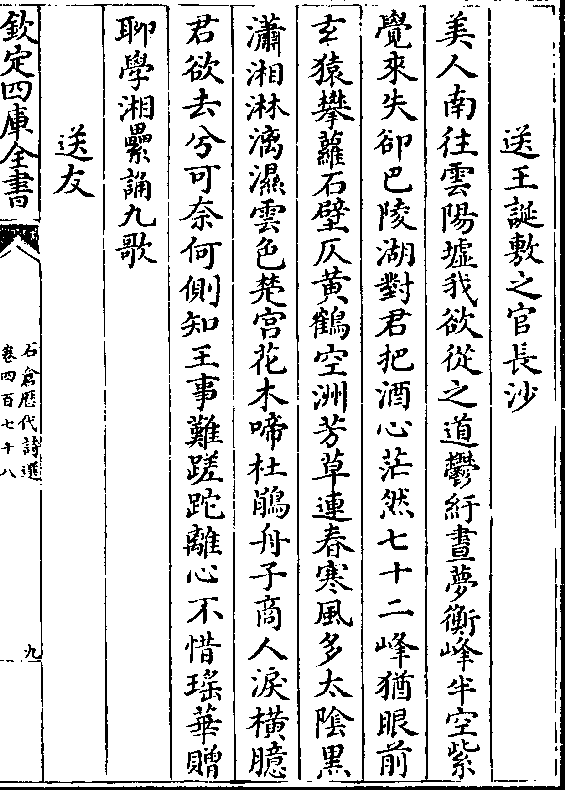 送王誕敷之官長沙
美人南徃雲陽墟我欲從之道鬱紆晝夢衡峰半空紫
覺來失卻巴陵湖對君把酒心茫然七十二峰猶眼前
玄猿攀蘿石壁仄黄鶴空洲芳草連春寒風多太陰黑
瀟湘淋漓濕雲色楚宫花木啼杜鵑舟子商人淚横臆
君欲去兮可奈何側知王事難蹉跎離心不惜瑤華贈
聊學湘纍誦九歌
送友
欽定四庫全書
石倉歴代詩選
卷四百七十八
九